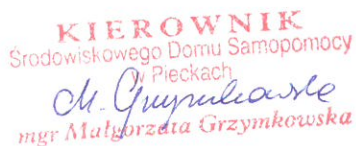 KIEROWNIK
Środowiskowego Domu Samopomocy
w Pieckach
M. Grzymkowska
mgr Małgorzata Grzymkowska